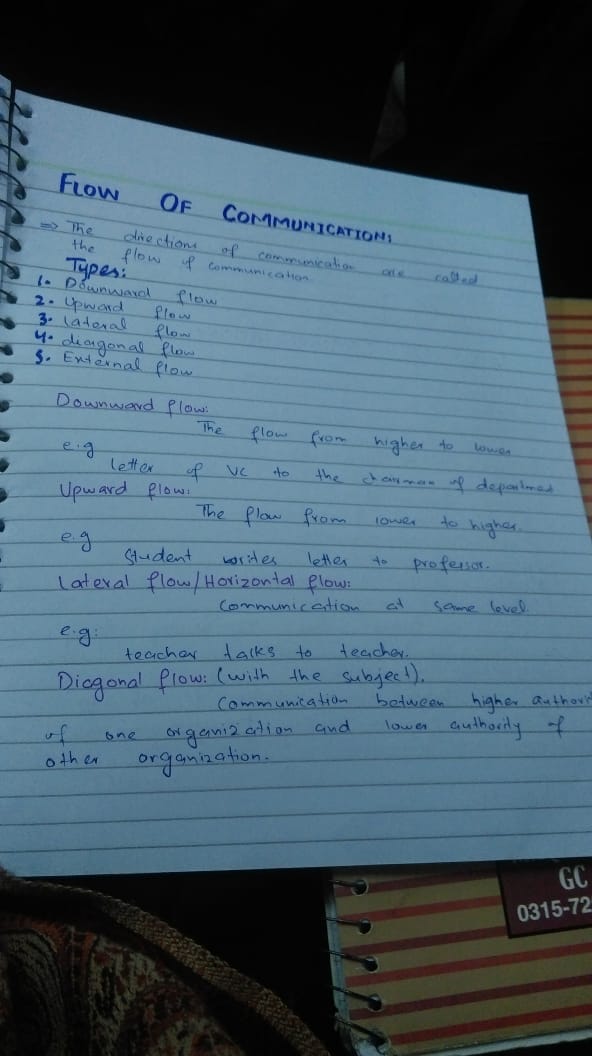 FLOW OF COMMUNICATION:
=> The directions of communication are called
the flow of communication
Types:
1. Downward flow
2. Upward flow
3. lateral flow
4. diagonal flow
5. External flow
Downward flow:
The flow from higher to lower
e.g
letter of VC to the chairman of department
Upward flow:
The flow from lower to higher.
e.g
Student writes letter to professor.
Lateral flow/Horizontal flow:
Communication at same level.
e.g:
teacher talks to teacher.
Diagonal flow: (with the subject).
Communication between higher authori
of one organization and lower authority of
other organization.
GC
0315-72